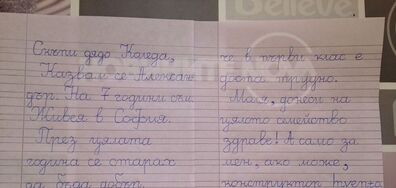 Believe
Скъпи дядо Коледа,
Казвам се Алексан-
дър. На 7 години съм.
Живея в София.
През цялата
година се старах
да бъда добър.
че в първи клас е
доста трудно.
Моля, донеси на
цялото семейство
здраве! А само за
мен, ако може,
конструктор